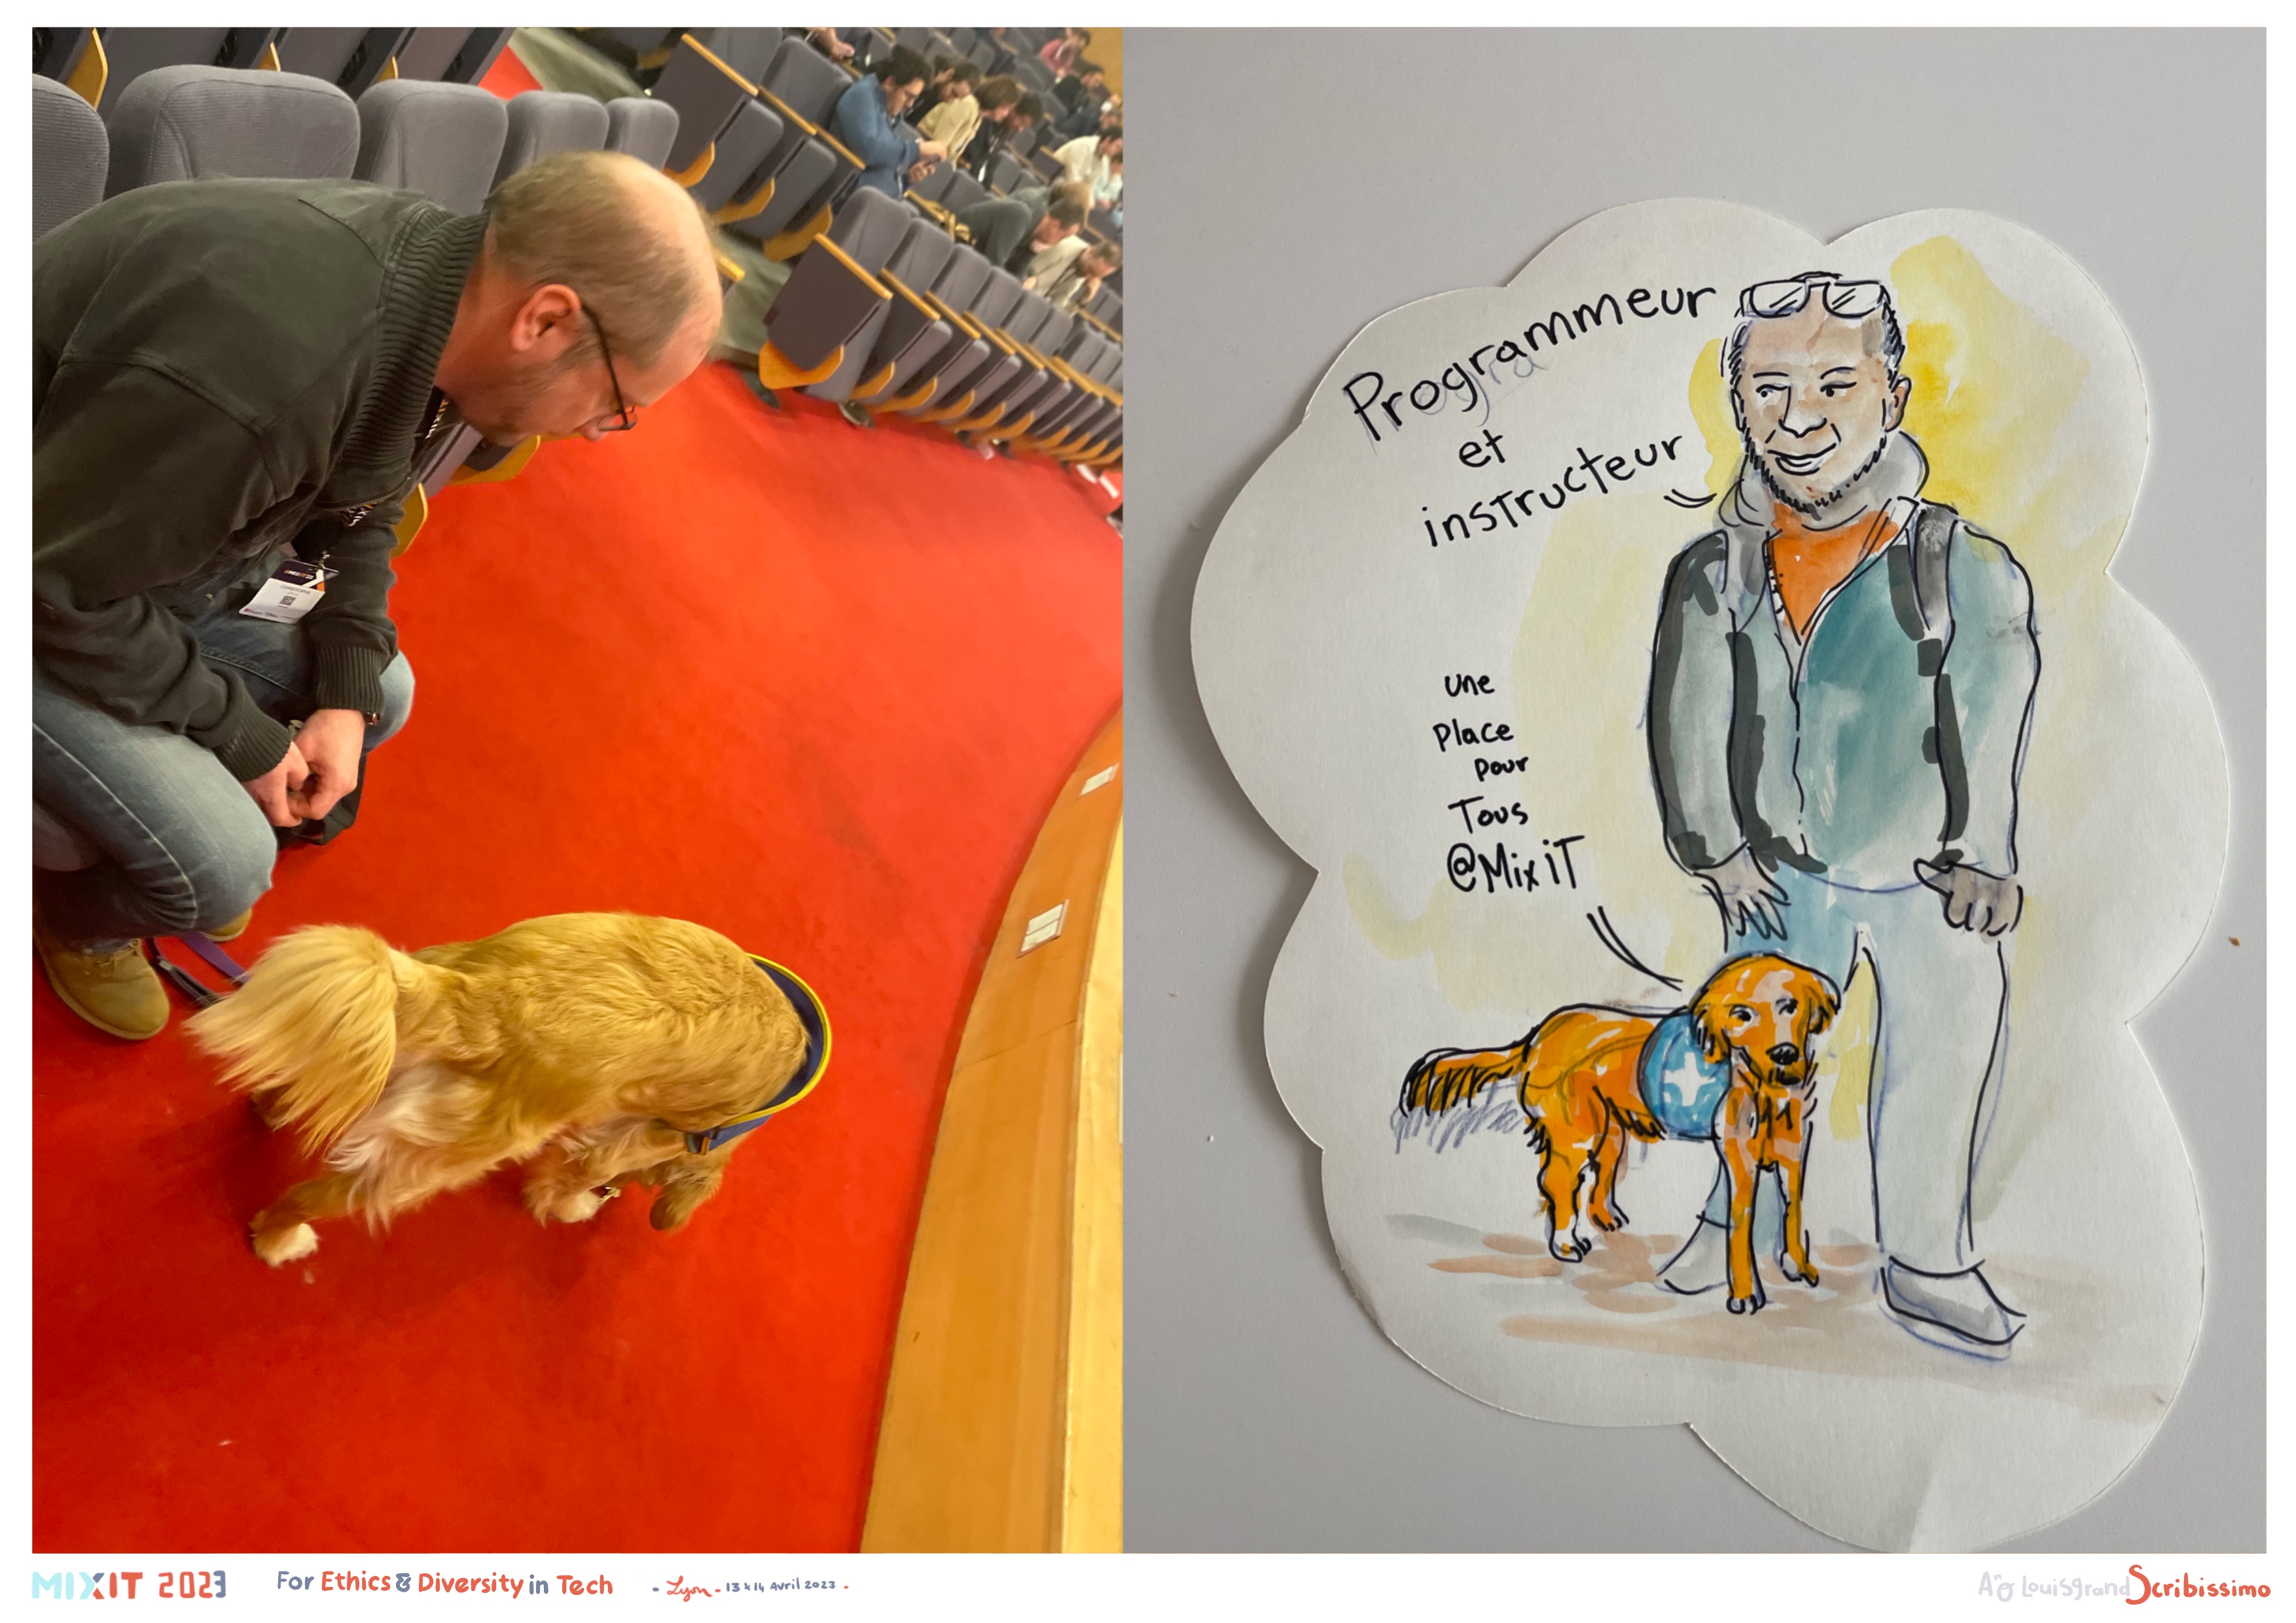 MiXiT
CHRISTOPHE
Programmeur
et
instructeur
une
Place
pour
Tous
@MixiT
MIXIT 2023
For Ethics & Diversity in Tech
- Lyon - 13 & 14 Avril 2023 -
Louisgrand Scribissimo